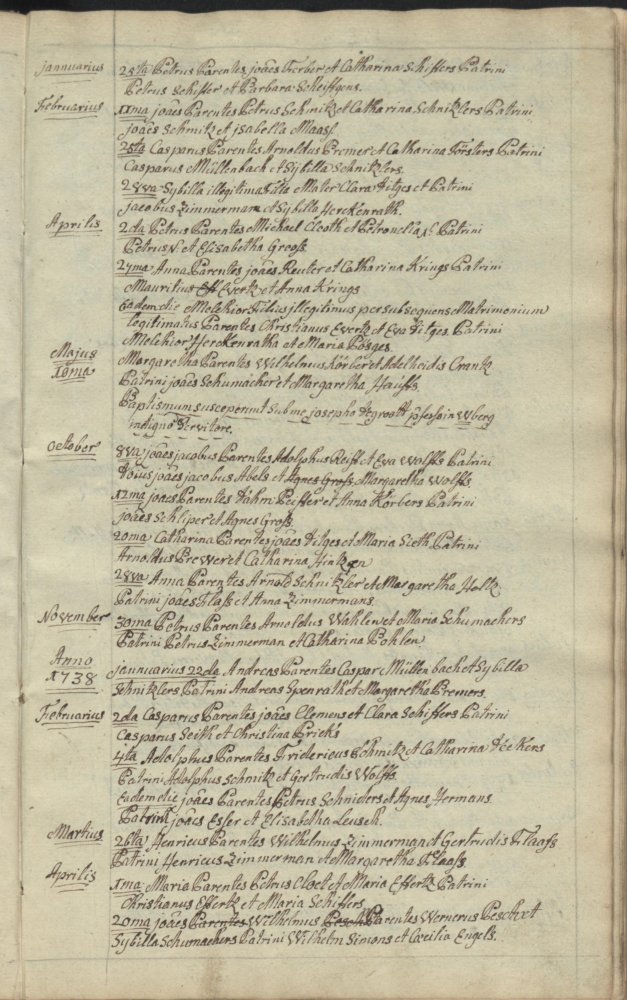 Jannuarius 25ta Petrus Parentes joães Ferber et Catharina Schiffers Patrini
Petrus Schiffer et Barbara Scheiffgens.
Februarius 11ma joães Parentes Petrus Schmitz et Catharina Schnitzlers Patrini
joães Schmitz et jsabella Maass.
25ta Casparus Parentes Arnoldus Premer et Catharina Försters Patrini
Casparus Müllenbach et Sybilla Schnitzlers.
28va Sybilla illegitima Filia Mater Clara Hilges et Patrini
jacobus Zimmerman et Sybilla Herckenrath.
Aprilis 2da Petrus Parentes Michael Clooth et Petronella N. Patrini
Petrus N. et Elisabetha Grooss
27ma Anna Parentes joães Reuter et Catharina Krings Patrini
Mauritius Evertz et Anna Krings
Eadem die Melchior Filius jllegitimus per subsequens Matrimonium
legitimatus Parentes Christianus Evertz et Eva Hilges Patrini
Melchior Herckenrath et Maria Posges
Majus Margaretha Parentes Wilhelmus Körber et Adelheidis Crantz
18ma Patrini joães Schumacher et Margaretha Hauffs
Baptismum susceperunt sub me josepho
indigno Servitore.
October 8va joães jacobus Parentes Adolphus Reiff et Eva Wolffs Patrini
joães jacobus Abels et Agnes Gross Margaretha Wolffs
12ma joães Parentes Peiffer et Anna Körbers Patrini
joães Schliper et Agnes Gross
20ma Catharina Parentes joães Hilges et Maria Sieth Patrini
Arnoldus Brewer et Catharina Hintzen
28va Anna Parentes Arnold Schnitzler et Margaretha Holtz
Patrini joães Flass et Anna Zimmermans.
November 30ma Petrus Parentes Arnoldus Wahlen et Maria Schumachers
Patrini Petrus Zimmerman et Catharina Pohlen
Anno jannuarius 22da Andreas Parentes Caspar Müllenbach et Sybilla
1738 Schnitzlers Patrini Andreas Spenrath et Margaretha Premers
Februarius 2da Casparus Parentes joães Clemens et Clara Schiffers Patrini
Casparus Seith et Christina Pricks
4ta Adolphus Parentes Fridericus Schmitz et Catharina Patrini
Adolphus Schmitz et Gertrudis Wolffs
Eadem die joães Parentes Petrus Schniders et Agnes Hermans
Patrini joães Esser et Elisabetha Leusch.
Martius 26ta Henricus Parentes Wilhelmus Zimmerman et Gertrudis Flaass
Patrini Henricus Zimmerman et Margaretha Flaass
Aprilis 1ma Maria Parentes Petrus Cloet et Maria Effertz Patrini
Christianus Effertz et Maria Schiffers
20ma joães Parentes Wilhelmus Parentes Wernerus Pesch et
Sybilla Schumachers Patrini Wilhelm Simons et Cæcilia Engels.